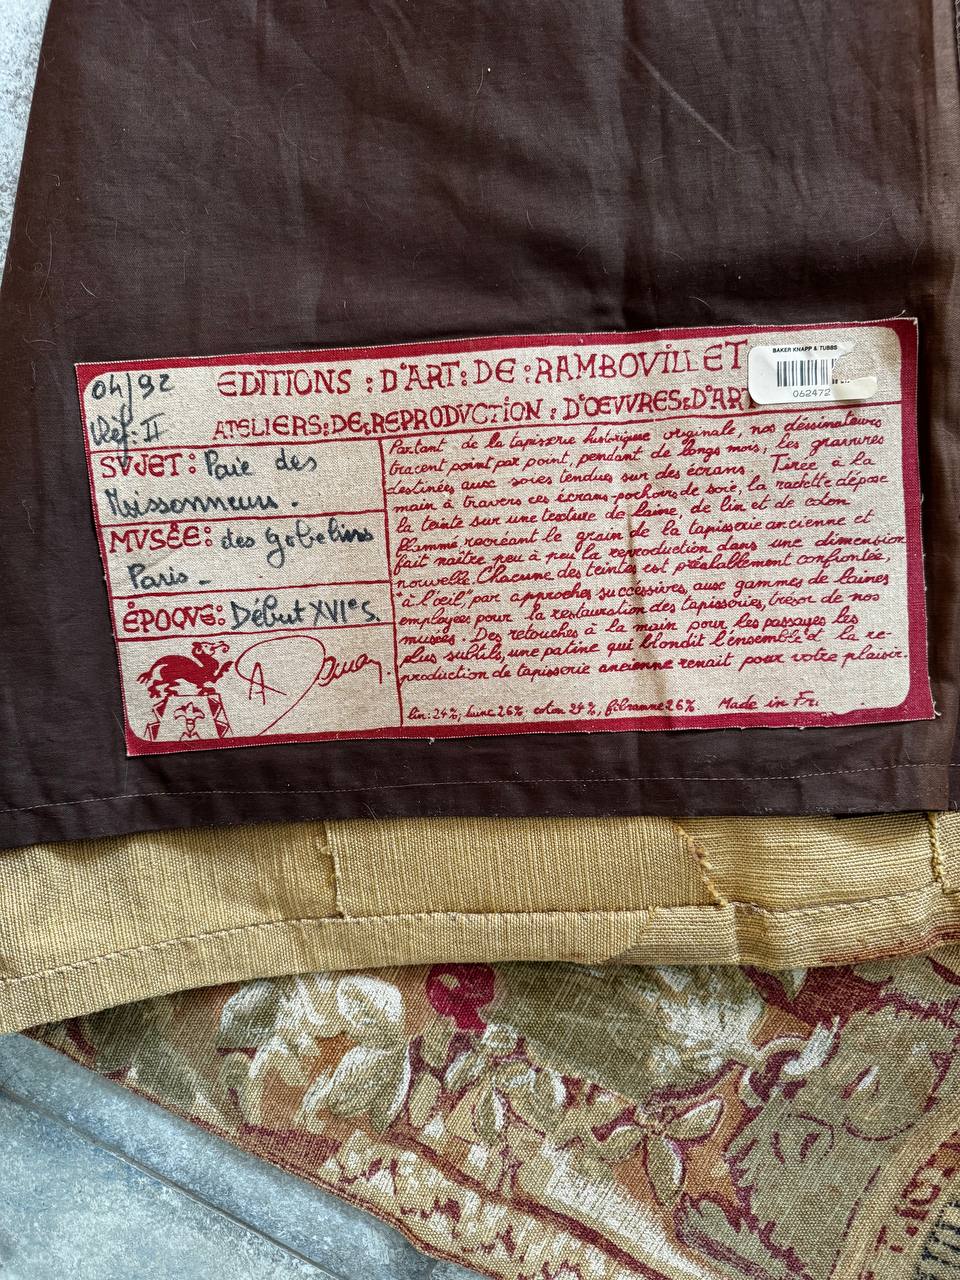 04/92
Réf: II
EDITIONS : D'ART : DE : RAMBOVILLET
ATELIERS : DE : REPRODVCTION : D'ŒVVRES : D'ART
BAKER KNAPP & TUBBS
062472
SVJET : Paie des
Moissonneurs.
MVSÉE : des Gobelins
Paris_
ÉPOQVE : Début XVIe S.
Partant de la tapisserie historique originale, nos dessinateurs
tracent point par point, pendant de longs mois, les gravures
destinées aux soies tendues sur des écrans. Tirée à la
main à travers ces écrans-pochoirs de soie, la raclette dépose
la teinte sur une texture de laine, de lin et de coton
flammé recréant le grain de la tapisserie ancienne et
fait naître peu à peu la reproduction dans une dimension
nouvelle. Chacune des teintes est préalablement confrontée,
"à l'œil", par approches successives, aux gammes de laines
employées pour la restauration des tapisseries, trésor de nos
musées. Des retouches à la main pour les passages les
plus subtils, une patine qui blondit l'ensemble et la re-
production de tapisserie ancienne renait pour votre plaisir.
lin: 24%, laine 26%, coton 24%, fibranne 26% Made in Fr.